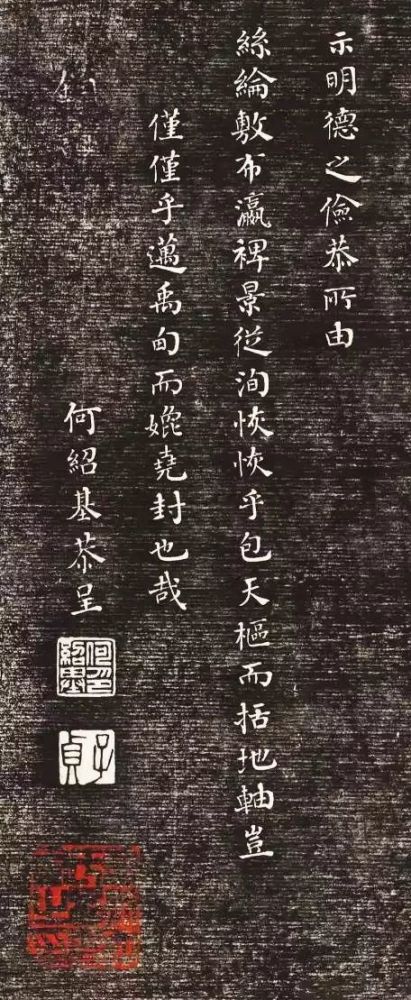 示明德之儉恭所由
絲綸敷布瀛裨景從洵恢恢乎包天樞而括地軸豈
僅僅乎邁禹甸而媲堯封也哉
何紹基恭呈
何紹基
子貞